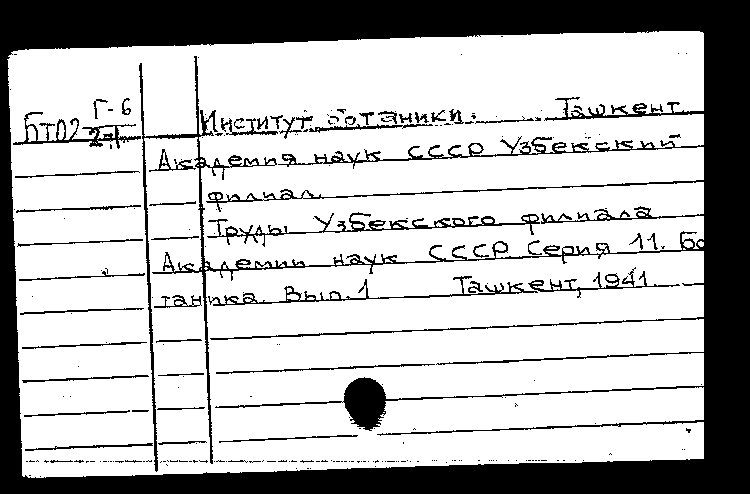 Г-6
БТ02 2-1
Институт ботаники. Ташкент
Академия наук СССР Узбекский
филиал.
Труды Узбекского филиала
Академии наук СССР Серия 11. Бо
таника. Вып. 1 Ташкент, 1941.